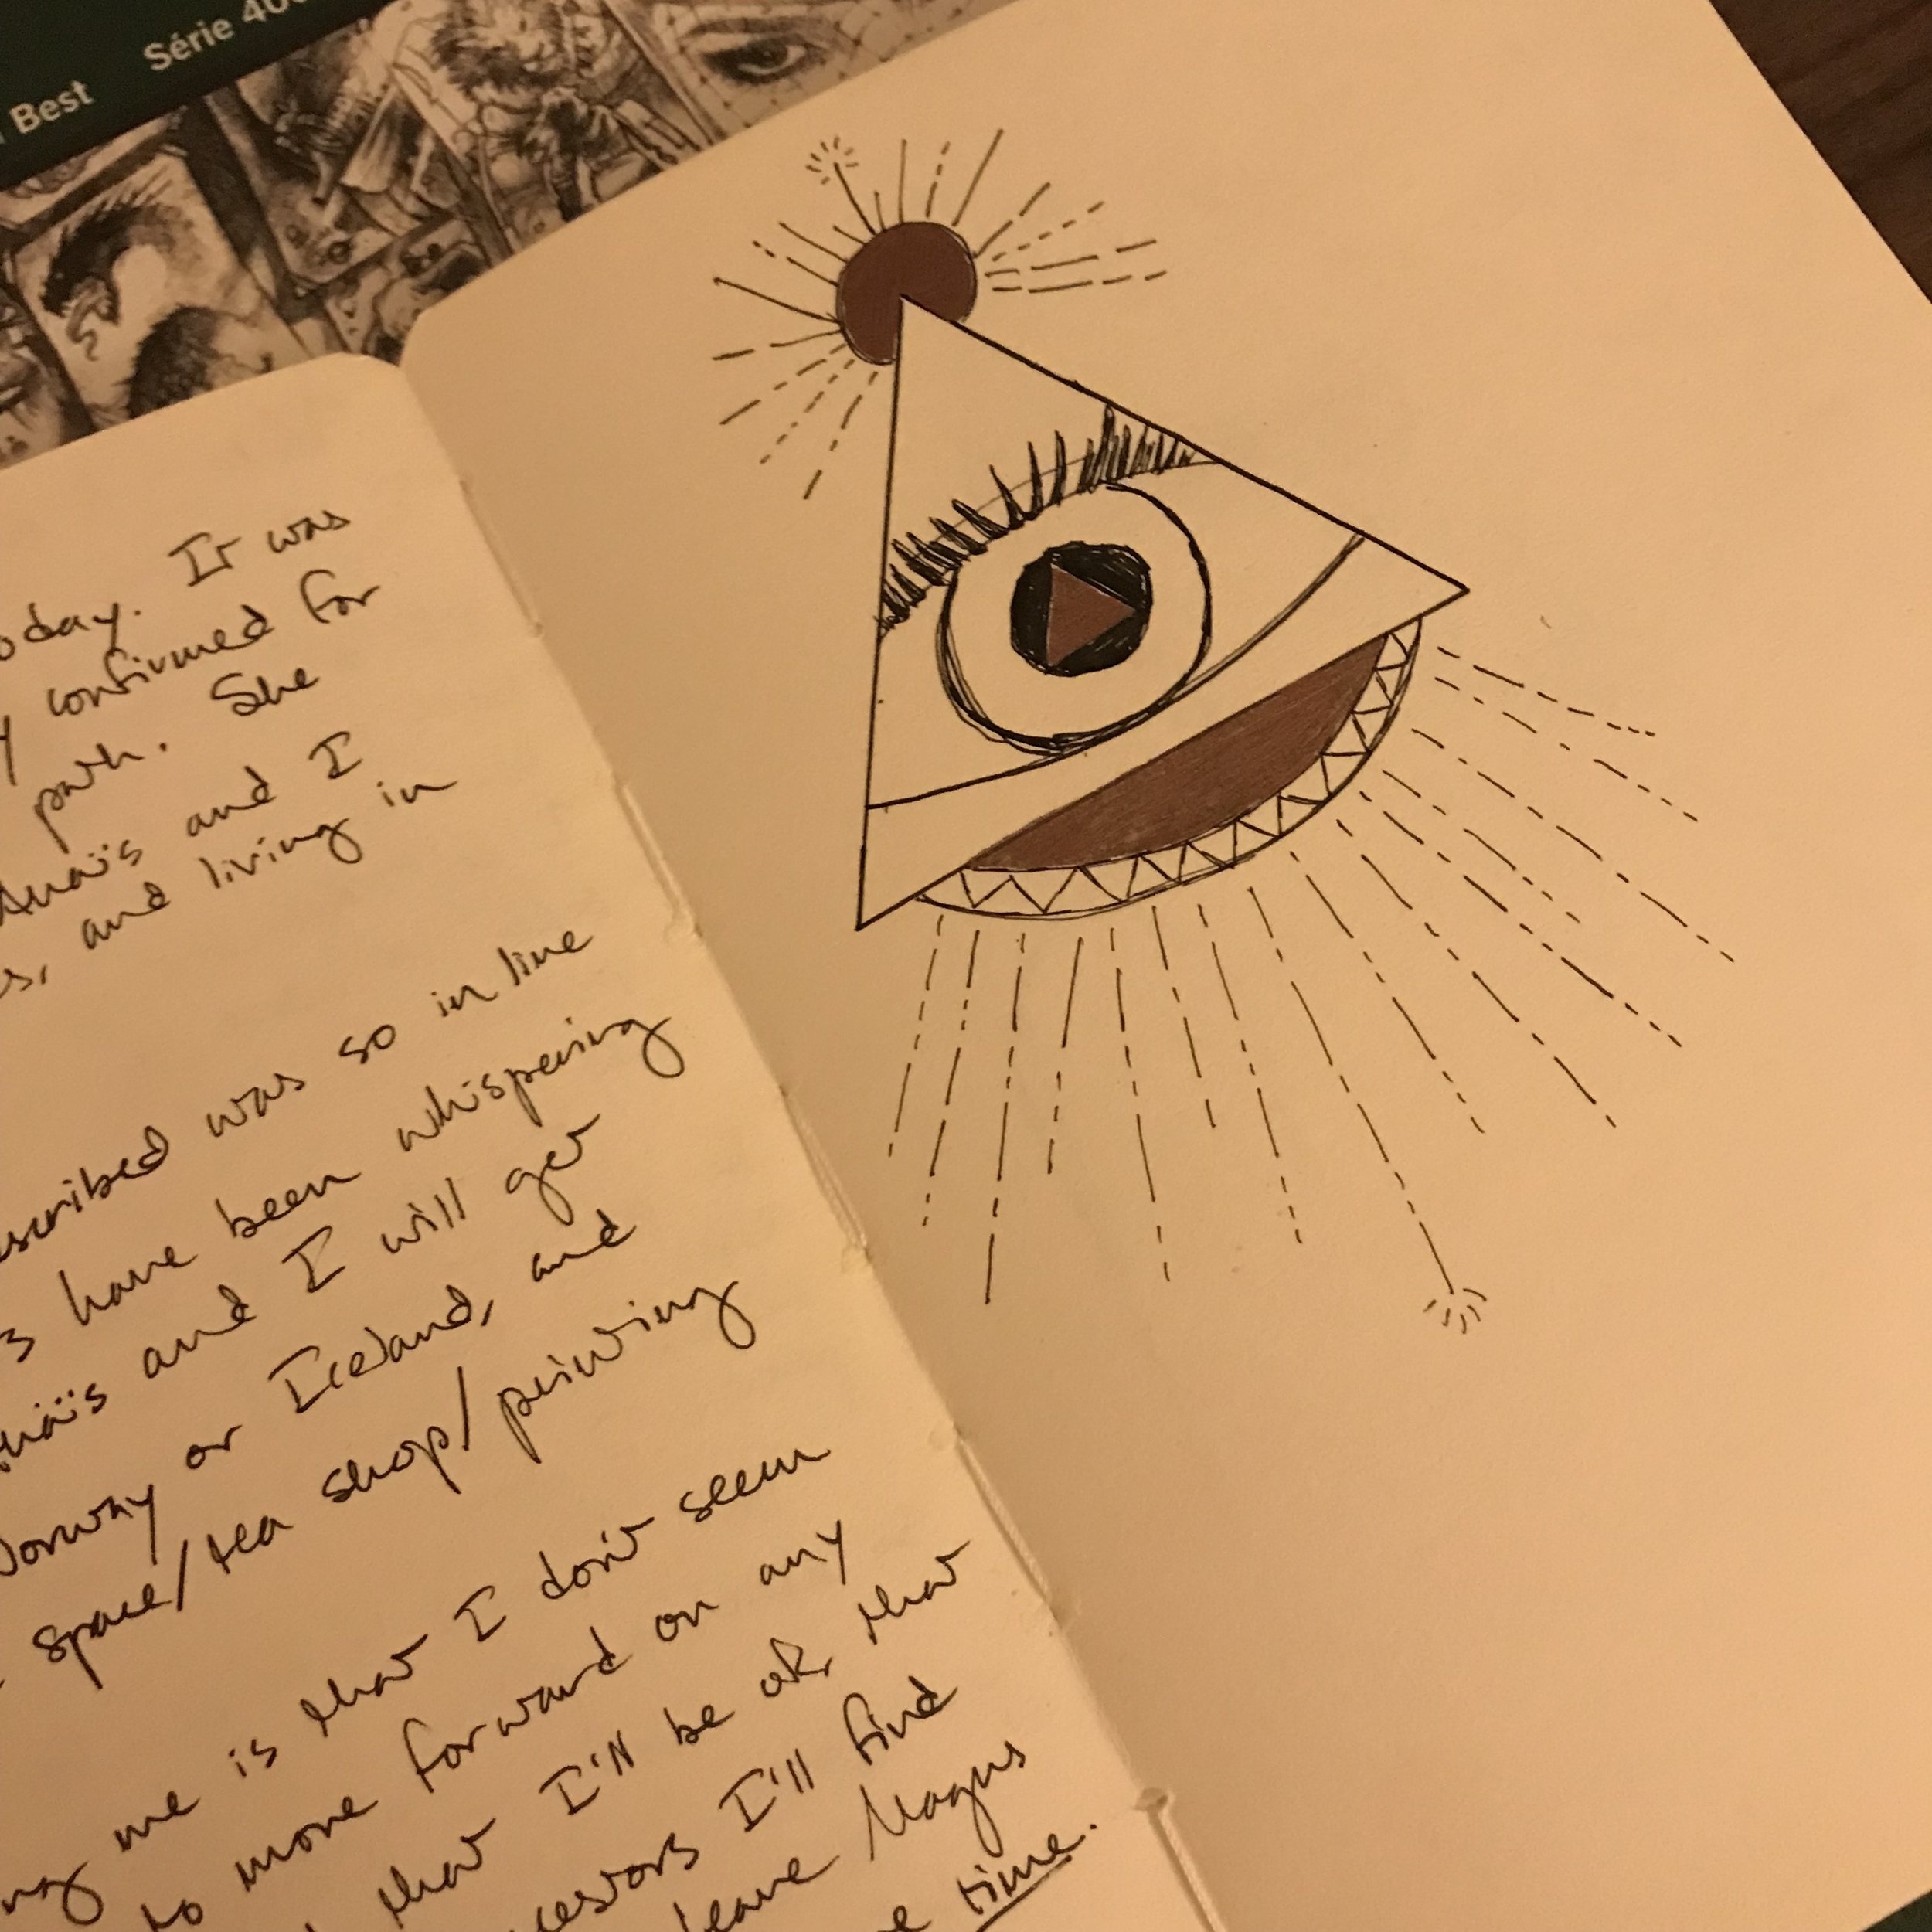 Série 400
Best
oday. It was
y confirmed for
path. She
Anaïs and I
s, and living in
scribed was so in line
s have been whispering
naïs and I will get
Norway or Iceland, and
space/tea shop/printing
me is that I don't seem
to move forward on any
that I'll be ok, that
cestors I'll find
leave Magus
e time.